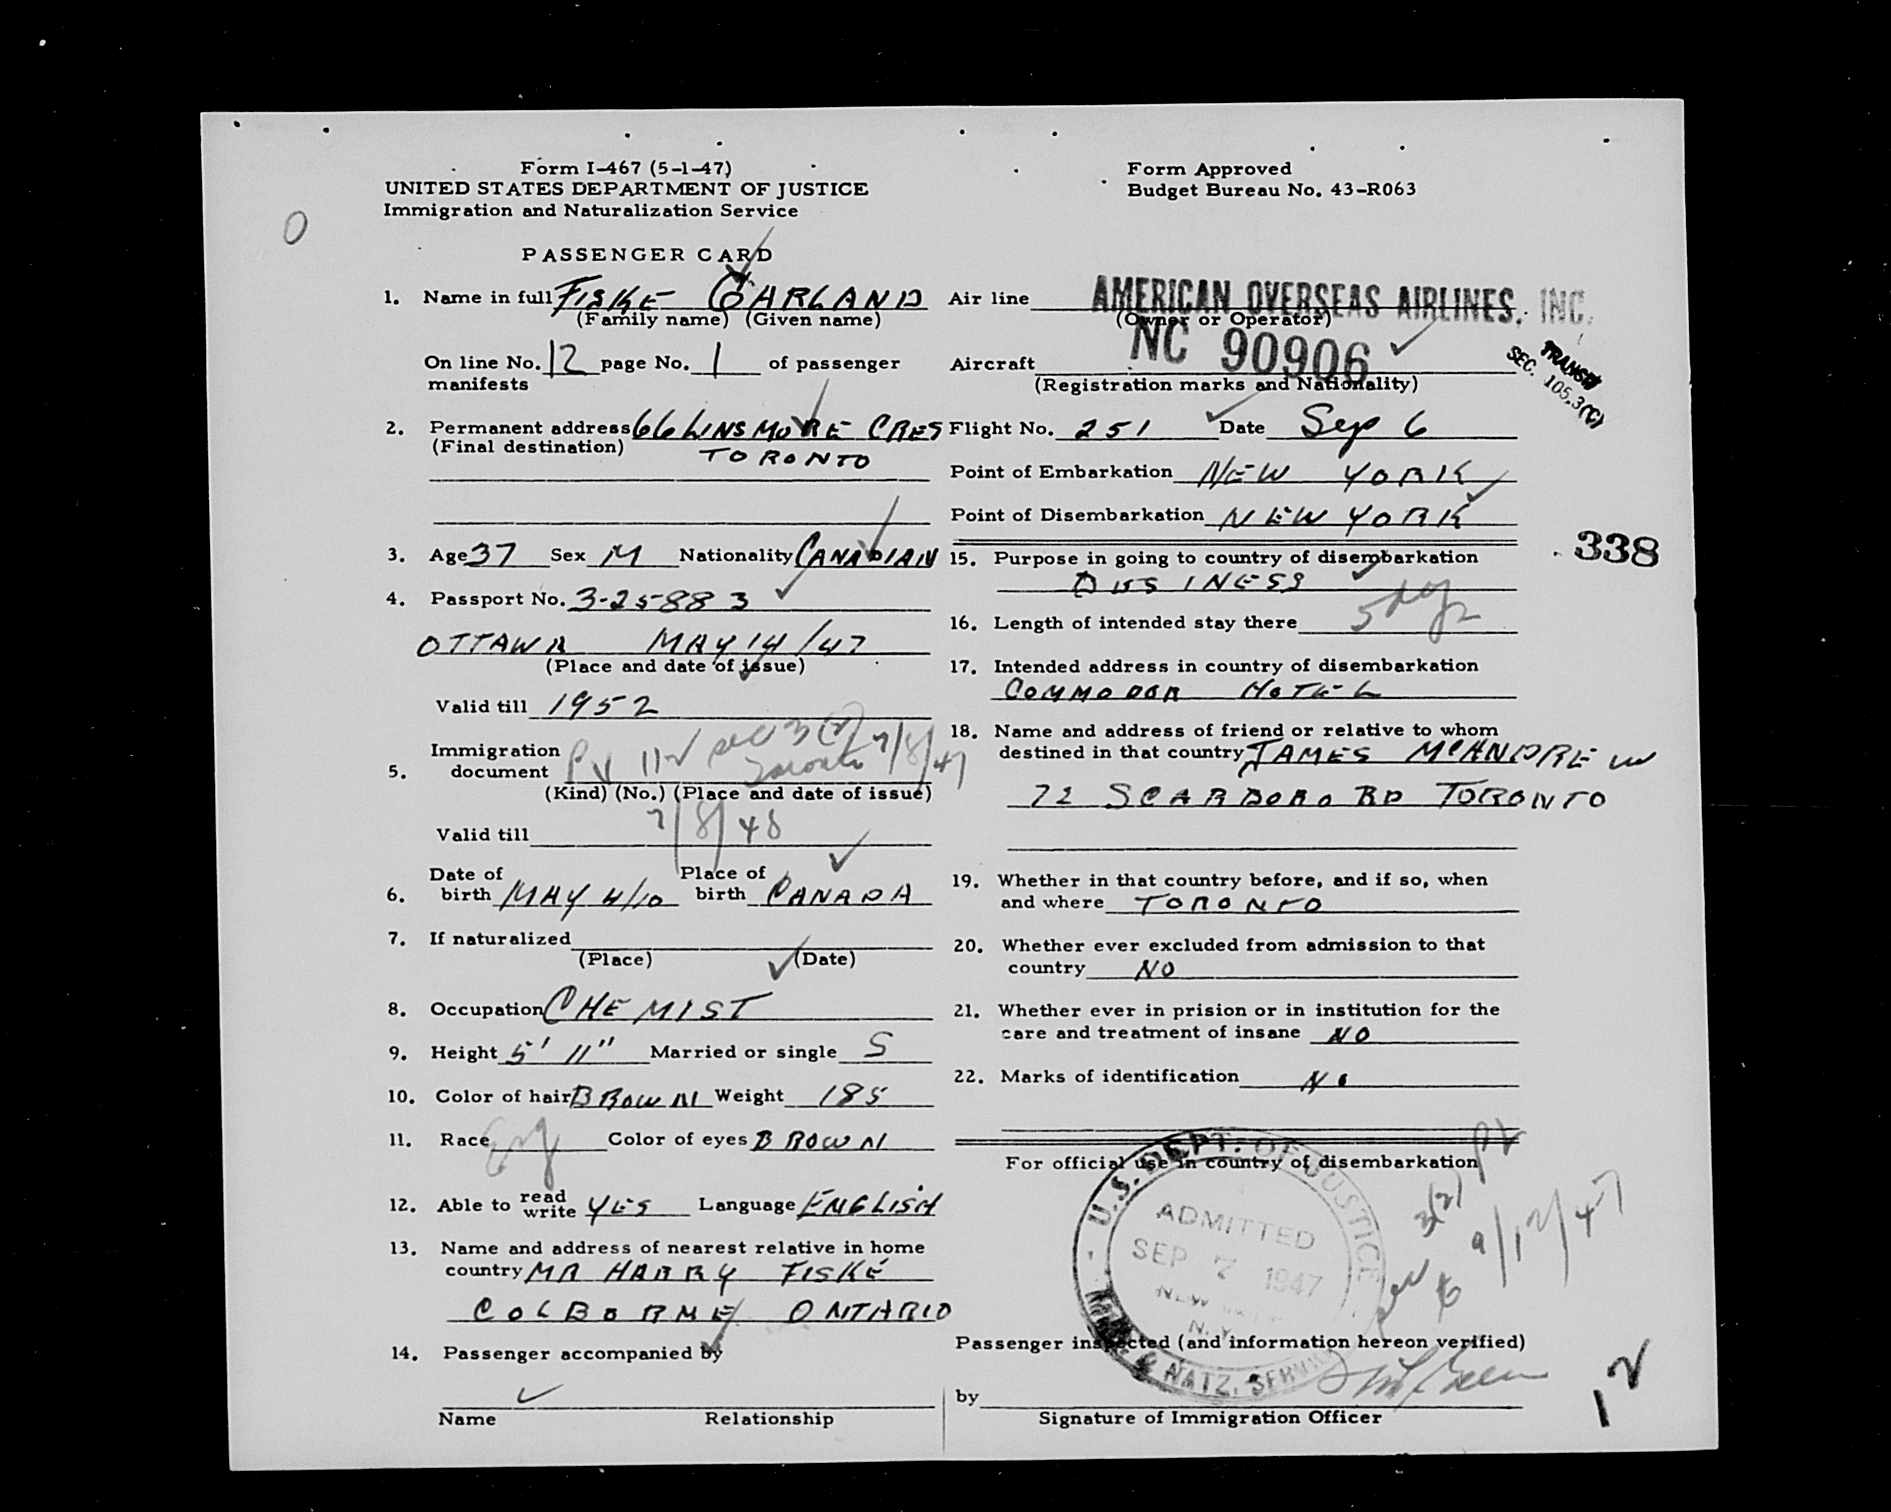 Form I-467 (5-1-47)
UNITED STATES DEPARTMENT OF JUSTICE
Immigration and Naturalization Service
Form Approved
Budget Bureau No. 43-R063
0
PASSENGER CARD
1. Name in full FISKE GARLAND
(Family name) (Given name)
On line No. 12 page No. 1 of passenger
manifests
2. Permanent address 66 LINSMORE CRES
(Final destination) TORONTO
3. Age 37 Sex M Nationality CANADIAN
4. Passport No. 3-25883
OTTAWA MAY 14/47
(Place and date of issue)
Valid till 1952
Immigration
5. document PV 11-2 sec 3(2) Toronto 7/8/47
(Kind) (No.) (Place and date of issue)
Valid till 7/8/48
Date of Place of
6. birth MAY 4/10 birth CANADA
7. If naturalized
(Place) (Date)
8. Occupation CHEMIST
9. Height 5' 11" Married or single S
10. Color of hair BROWN Weight 185
11. Race Eng Color of eyes BROWN
12. Able to read write YES Language ENGLISH
13. Name and address of nearest relative in home
country MR HARRY FISKE
COLBORNE ONTARIO
14. Passenger accompanied by
Name Relationship
Air line AMERICAN OVERSEAS AIRLINES, INC.
(Owner or Operator)
Aircraft NC 90906
(Registration marks and Nationality)
TRANSIT
SEC. 105.3(C)
Flight No. 251 Date Sep 6
Point of Embarkation NEW YORK
Point of Disembarkation NEW YORK
338
15. Purpose in going to country of disembarkation
BUSINESS
16. Length of intended stay there 5 dys
17. Intended address in country of disembarkation
COMMODOR HOTEL
18. Name and address of friend or relative to whom
destined in that country JAMES McANDREW
72 SCARBORO RD TORONTO
19. Whether in that country before, and if so, when
and where TORONTO
20. Whether ever excluded from admission to that
country NO
21. Whether ever in prision or in institution for the
care and treatment of insane NO
22. Marks of identification NO
For official use in country of disembarkation
U.S. DEPT. OF JUSTICE
ADMITTED
SEP 7 1947
NEW
N.Y.
& NATZ. SERVICE
PV
3(2)
9/12/47
Passenger inspected (and information hereon verified)
by
Signature of Immigration Officer
12